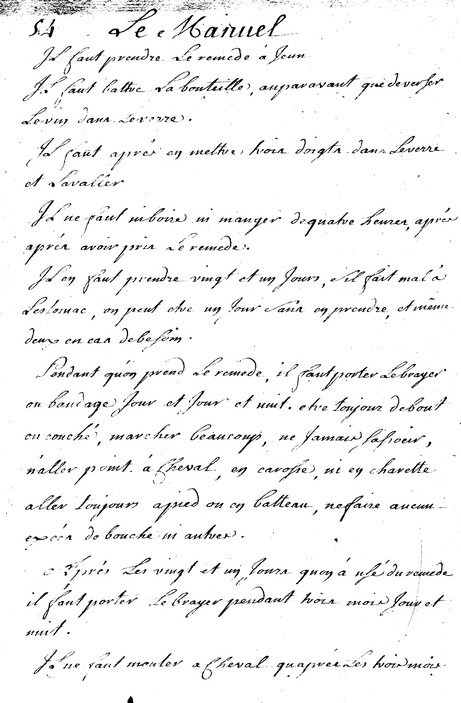 54 Le Manuel
Il faut prendre Le remede à Jeun
Il faut battre La bouteille, auparavant que deverser
Levin dans Leverre.
Il faut aprés en mettre trois doigts dans Leverre
et Lavaller
Il ne faut niboire ni manger dequatre heures, aprés
aprés avoir pris Le remede.
Il en faut prendre vingt et un Jours, s'il fait mal à
Lestomac, on peut etre un Jour sans en prendre, et même
deux en cas debesoin.
Pendant qu'on prend Le remede, il faut porter Lebrayer
ou bandage Jour et Jour et nuit. etre toujour debout
ou couché, marcher beaucoup, ne Jamais sassoir,
n'aller point à Cheval, en carosse, ni en charette
aller toujours apied ou en batteau, nefaire aucun
excés de bouche ni autres.
Aprés Les vingt et un Jours quon à usé du remede
il faut porter Le brayer pendant trois mois Jour et
nuit.
Il ne faut monter a Cheval quaprés Les trois mois